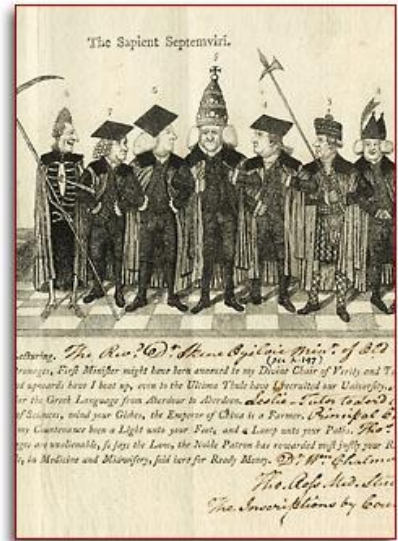 The Sapient Septemviri.
8 7 6 5 4 3 2
Lecturing. The Rev.d Dr. Skene Ogilvie Minr. of Old
(see p. 197)
tronages, First Minister might have been annexed to my Divine Chair of Verity and T
nd upwards have I beat up, even to the Ultima Thule have I recruited our University.
for the Greek Language from Aberdour to Aberdeen. Leslie - Tutor to Lord
of Sciences, mind your Globes, the Emperor of China is a Farmer. Principal
my Countenance been a Light unto your Feet, and a Lamp unto your Paths. Tho.s
ges are unalienable, so says the Law, the Noble Patron has rewarded most justly your R
ls, in Medicine and Midwifery, sold here for Ready Money. Dr. Wm. Chalm
Tho. Ross Med. Stu
The Inscriptions by Cou